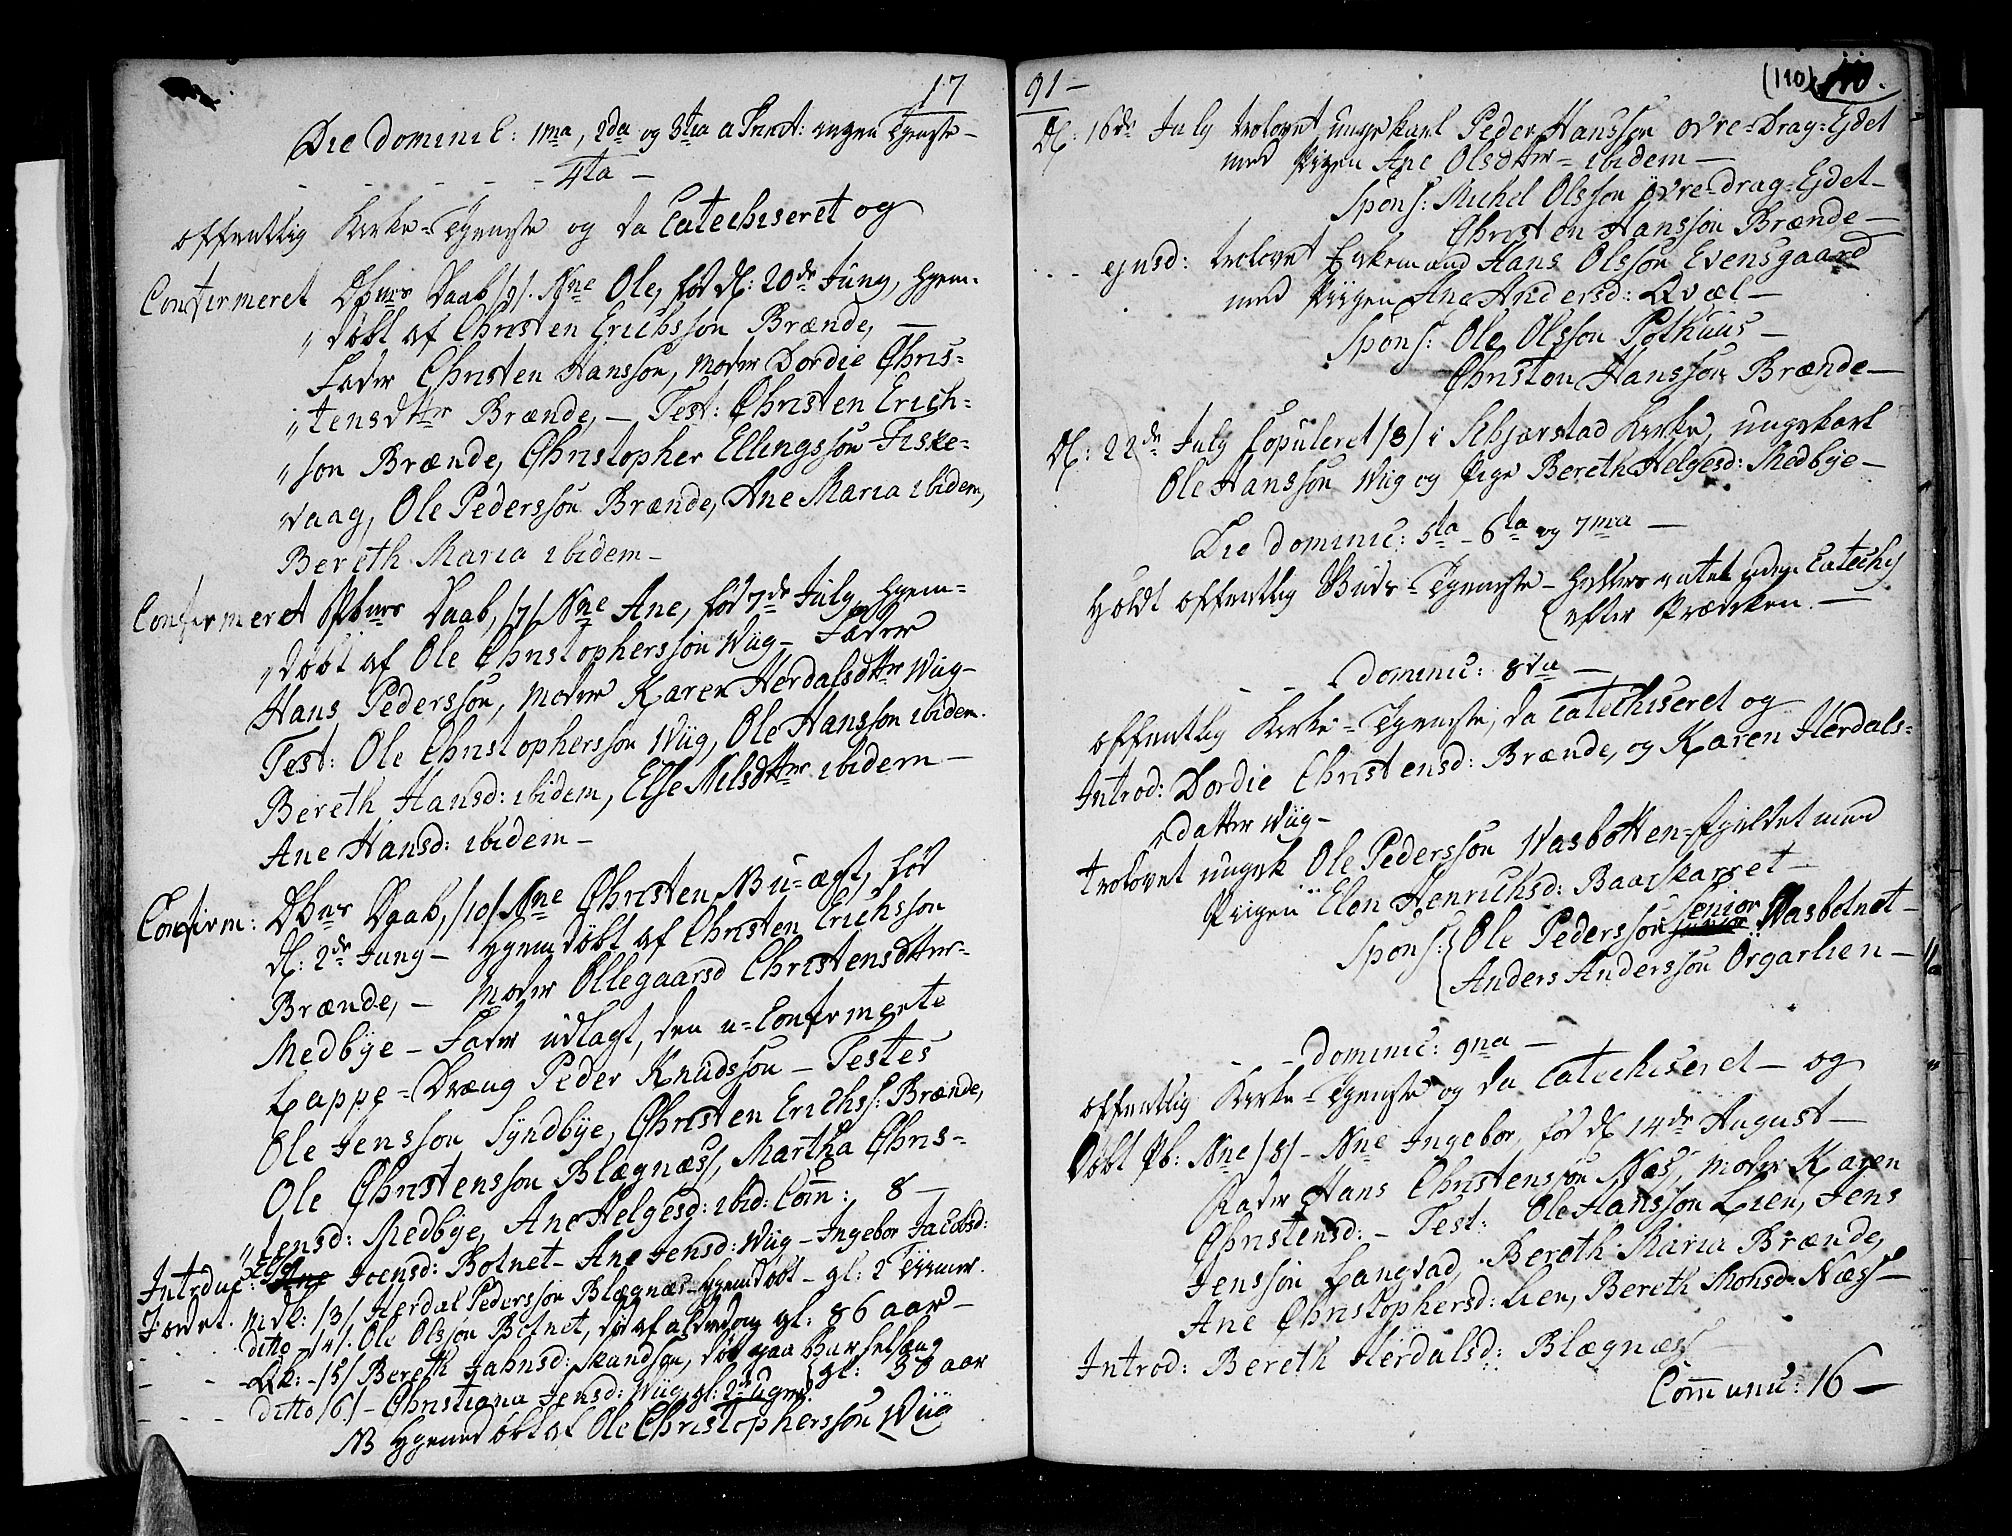 17
Die Dominic: 1ma, 2da og 3tia a Trinit: ingen Tjeneste –
4ta –
offentlig Kirke-Tjeneste og da Catechiseret og
Confirmeret Dbnes Daab /9/. Nne Ole, fød d: 20de Juny, hjem-
„døbt af Christen Erichsson Brænde, –
Fader Christen Hansson, Moder Dordie Chris-
„tensdtter Brænde, – Test: Christen Erich-
„son Brænde, Christopher Ellingsson Fiske-
vaag, Ole Pedersson Brænde, Ane Maria ibidem,
Bereth Maria ibidem –
Confirmeret Pbnes Daab, /7/ Nne Ane, fød 7de July, hjem-
„døbt af Ole Christophersson Wiig – Fader
Hans Pedersson, Moder Karen Herdalsdtter Wiig –
Test: Ole Christophersson Wiig, Ole Hansson ibidem.
Bereth Hansd: ibidem, Else Nilsdtter ibidem –
Ane Hansd: ibidem –
Confirm: Dbnes Daab, /10/ Nne Christen, NB u-ægt, fød
d: 2de Juny – hjemdøbt af Christen Erichsson
Brænde, – Moder Ollegaard Christensdtter –
Medbye – Fader udlagt, den u-Confirmerte
Lappe-Dræng Peder Knudsson – Testes
Ole Jensson Syndbye, Christen Erichs: Brænde,
Ole Christensson Blægnæss, Martha Chris-
„tensd: Medbye, Ane Helgesd: ibid: Com: 8 –
Introduc: Else Joensd: Botnet – Ane Jensd: Wiig – Ingebor Jacobsd:
Jordet. Mdk: /3/ Herdal Pedersson Blægnæs – hjemdøbt – gl: 2 Timer.
ditto – /4/. Ole Olsson Botnet, død af alderdom gl: 86 aar –
Qk: – /5/ Bereth Jahnsd: Skandsen, død paa Barselsæng
gl: 38 aar
ditto /6/ – Christiana Jensd: Wiig gl: 2de Uger
NB hjemdøbt af Ole Christophersson Wiig
91 –
(110) 110.
d: 16de July trolovet ungekarl Peder Hansson Øvre-Drag-Ejdet
med Pigen Ane Olsdtter – ibidem –
Spons: Michel Olsson Øvre-drag-Ejdet –
Christen Hansson Brænde –
ejusd: trolovet Enkemand Hans Olsson Evensgaard
med Piigen Ane Andersd: Qvæl –
Spons: Ole Olsson Pothuus –
Christen Hansson Brænde –
d: 22de July Copuleret /3/ i Schjærstad Kirke, ungekarl
Ole Hansson Wiig og Pige Bereth Helgesd: Medbye –
Die Dominic: 5ta – 6ta og 7ma –
Holdt offentlig Guds-Tjeneste – Catech:
efter Prædiken. –
Dominic: 8va –
offentlig Kirke-Tjeneste, da Catechiseret og
Introd: Dordie Christensd: Brænde, og Karen Herdals-
„datter Wiig –
trolovet ungek Ole Pedersson Wasbotten-fjeldet med
Piigen Elen Henrichsd: Baarskarret –
Spons: Ole Pedersson Senior Wasbotnet –
Anders Andersson Orgarlien –
– – Dominic: 9na –
offentlig Kirke-Tjeneste og da Catechiseret – og
Døbt Pb: Nne /8/ – Nne Ingebor, fød d 14de August –
Fader Hans Christensson Næs, Moder Karen
Christensd: – Test: Ole Hansson Lien, Jens
Jensson Langvad, Bereth Maria Brænde,
Ane Christophersd: Lien, Bereth Monsd: Næss –
Introd: Bereth Herdalsd: Blægnæss
Communic: 16 –